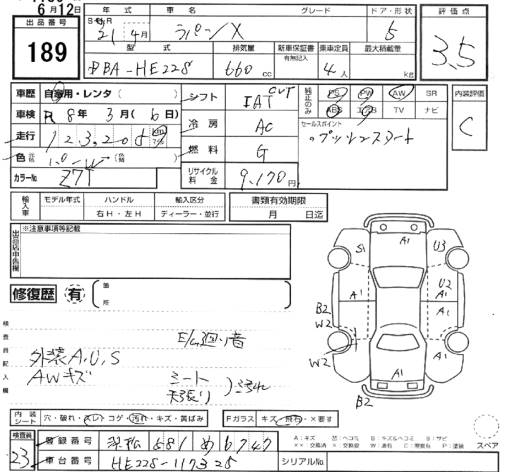 6月12日
出品番号
189
年式 車名 グレード ドア・形状
21年 4月 ラパンX 5
型式 排気量 新車保証書 有無記入 乗車定員 最大積載量
DBA-HE22S 660cc 4人 kg
評価点
3.5
車歴 自家用・レンタ ( )
車検 R 8年 3月 ( 6日)
走行 123,205 km
色 パール-W
カラーNo Z7T
シフト IAT CVT
冷房 AC
燃料 G
リサイクル料金 9,170円
純正のみ PS PW AW SR
ABS エアB TV ナビ
セールスポイント
・プッシュスタート
内装評価
C
輸入車 モデル年式 ハンドル 右H・左H 輸入区分 ディーラー・並行
書類有効期限
月 日迄
※注意事項等記載
修復歴 有 箇所
検査員記入欄
E/G廻り音
外装A,U,S
AWキズ
シート
天張り
S1 A1 U3
A1 U2 A1
B2 A1 A1
W2
W2 A1
B2
内装シート 穴・破れ・スレ・コゲ・汚れ・キズ・黄ばみ
Fガラス キズ・飛石・×要す
A:キズ U:ヘコミ B:キズ&ヘコミ S:サビ
スペア
検査員 23
登録番号 581 め 6747
車台番号 HE22S-117325
シリアルNo